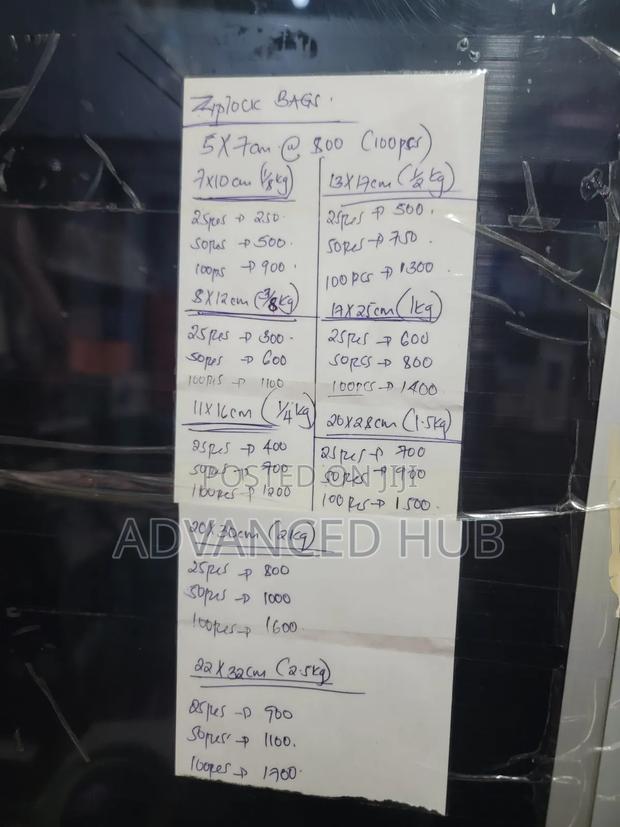 Ziplock BAGS.
5X7cm @ 800 (100pcs)
7X10cm (1/8kg)
25pcs → 250.
50pcs → 500.
100ps → 900.
8X12cm (3/8kg)
25pcs → 300.
50pcs → 600
100pcs → 1100
11X16cm (1/4kg)
25pcs → 400
50pcs → 700
100pcs → 1200
13X17cm (1/2kg)
25pcs → 500.
50pcs → 750.
100pcs → 1300
17X25cm (1kg)
25pcs → 600
50pcs → 800
100pcs → 1400
20X28cm (1.5kg)
25pcs → 700
50pcs → 900
100pcs → 1500.
POSTED ON JIJI
ADVANCED HUB
20X30cm (2kg)
25pcs → 800
50pcs → 1000
100pcs → 1600.
22X32cm (2.5kg)
25pcs → 900
50pcs → 1100.
100pcs → 1700.